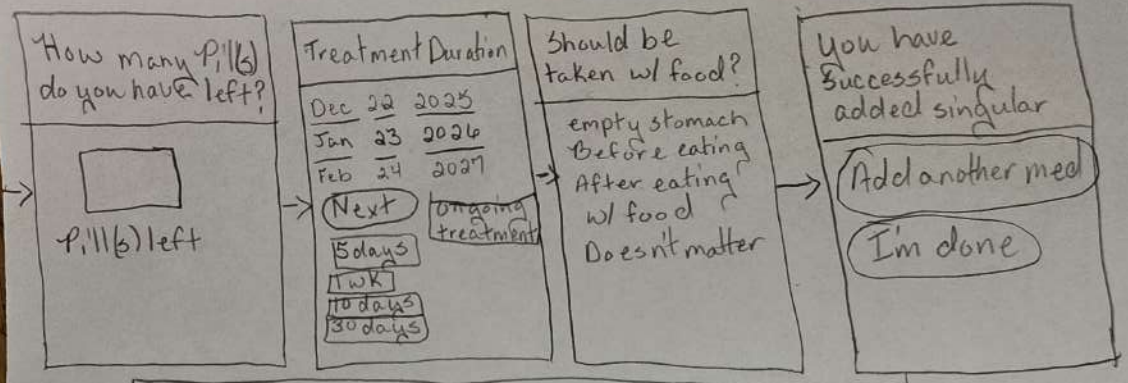 How many Pill(s)
do you have left?
Pill(s) left
Treatment Duration
Dec 22 2025
Jan 23 2026
Feb 24 2027
Next
ongoing
treatment
5 days
1 wk
10 days
30 days
Should be
taken w/ food?
empty stomach
Before eating
After eating
w/ food
Doesn't matter
you have
Successfully
added singular
Add another med
I'm done